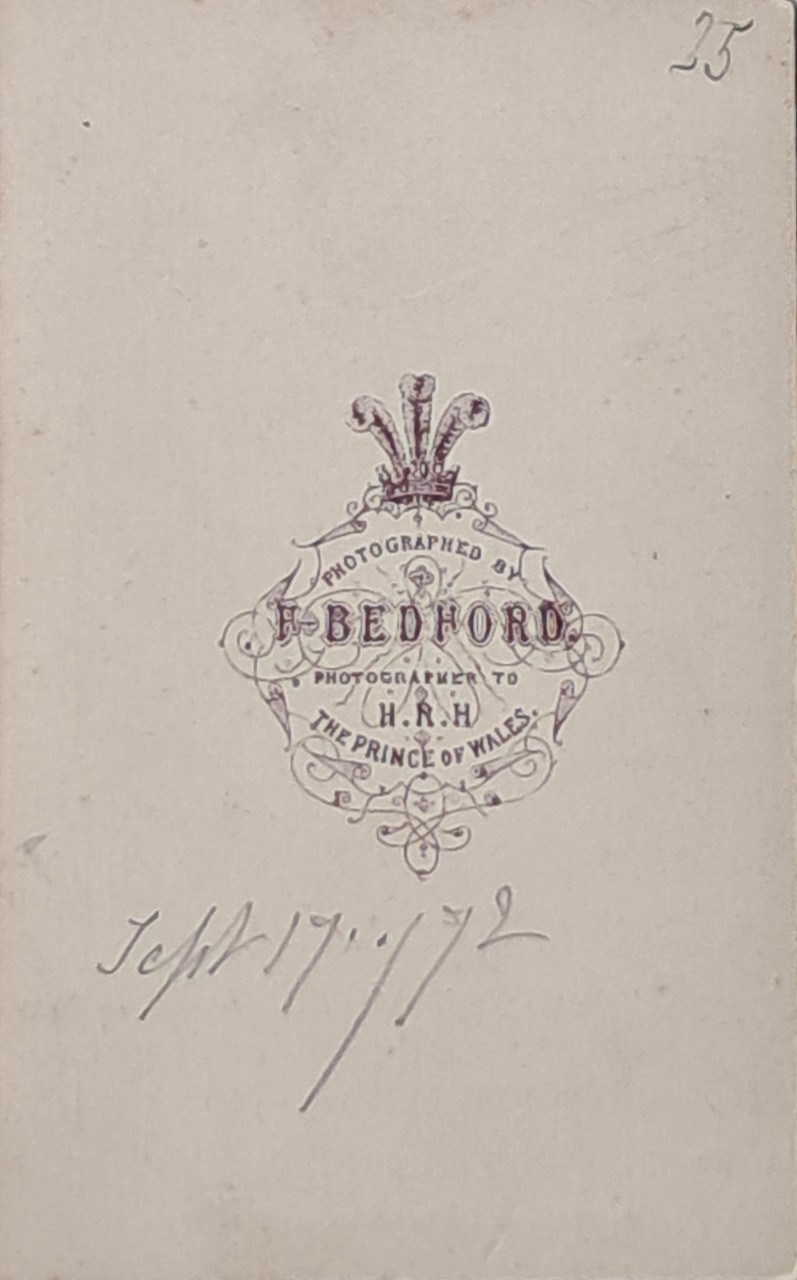 25
PHOTOGRAPHED BY
F. BEDFORD.
PHOTOGRAPHER TO
H.R.H
THE PRINCE OF WALES.
Sept 17../72